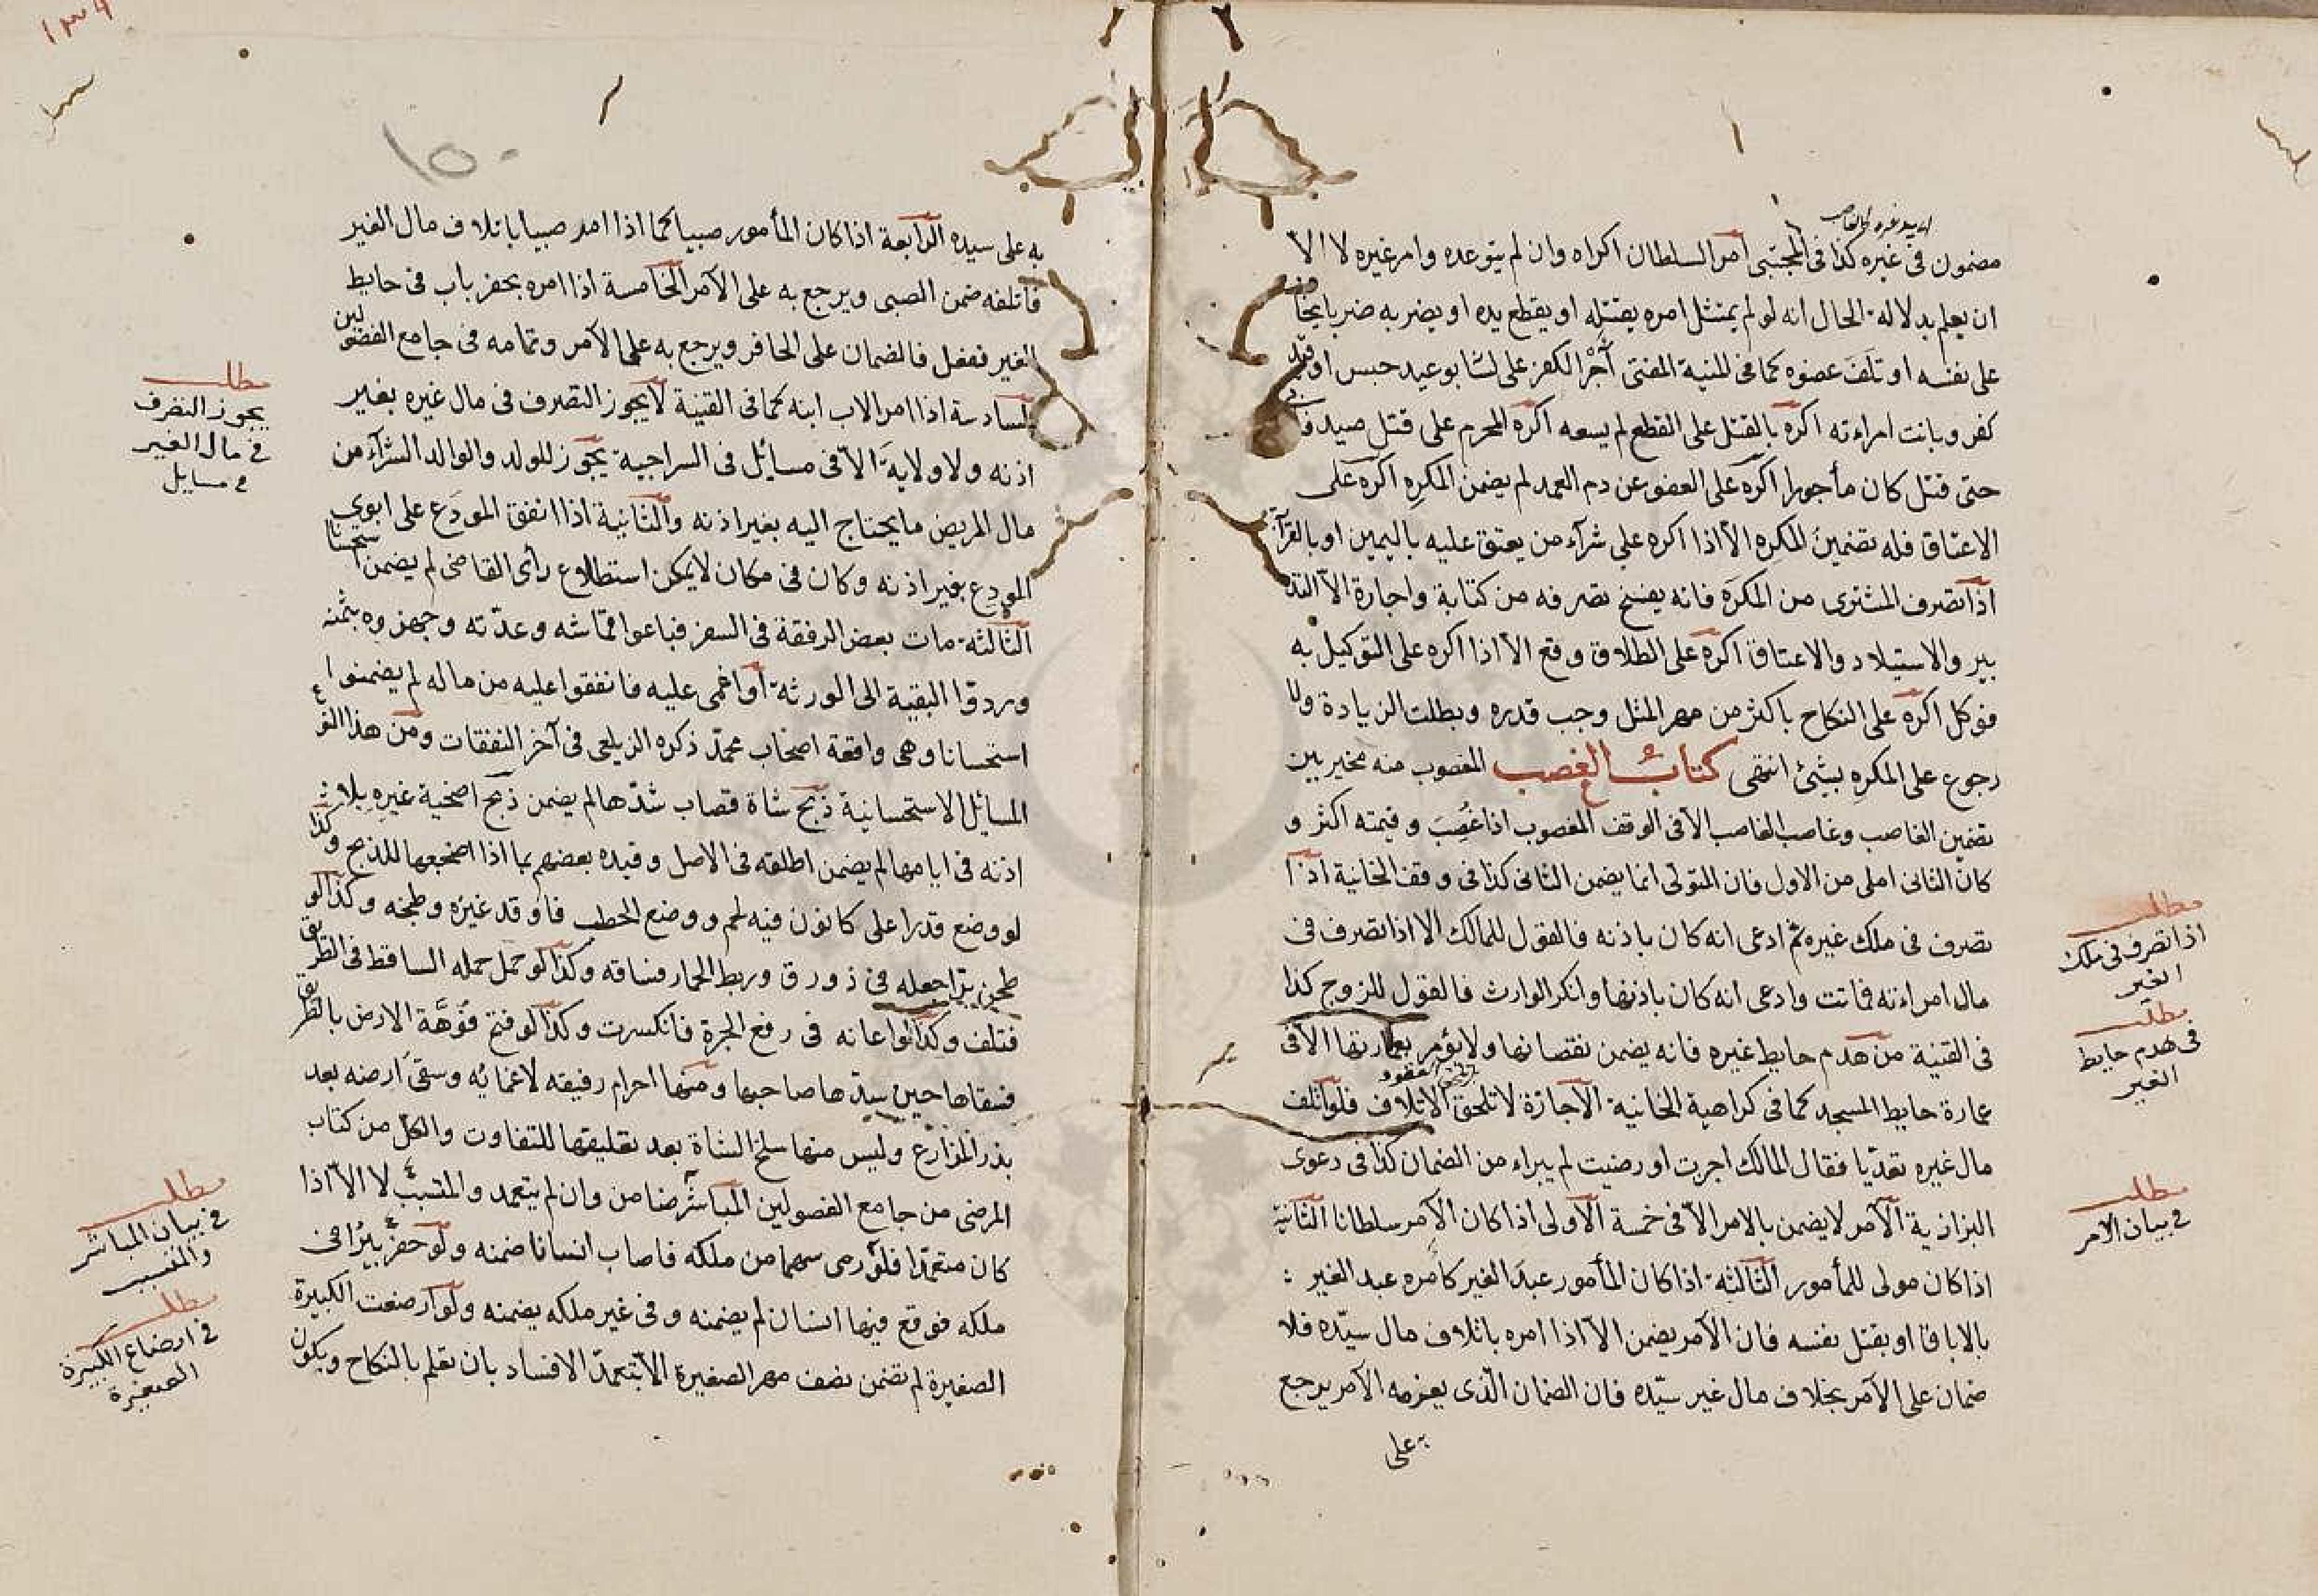 مضمون فى غيره كذا فى المجتبى امر السلطان اكراه وان لم يتوعده وامر غيره لا الا
ان يعلم بدلالة الحال انه لو لم يمتثل امره يقتله او يقطع يده او يضربه ضربا يخاف
على نفسه او تلف عضوه كما فى المنية المفتى اجرا لكفر على لسانه بوعيد حبس او قيد
كفر وبانت امراءته اكره بالقتل على القطع لم يسعه اكره المحرم على قتل صيد
حتى قتل كان مأجورا اكره على العفو عن دم العمد لم يضمن المكره اكره على
الاعتاق فله تضمين المكره الا اذا اكره على شرآء من يعتق عليه باليمين او بالقرآبة
اذا تصرف المشترى من المكره فانه يفسخ تصرفه من كتابة واجارة الا التد
بير والاستيلاد والاعتاق اكره على الطلاق وقع الا اذا اكره على التوكيل به
فوكل اكره على النكاح باكثر من مهر المثل وجب قدره وبطلت الزيادة ولا
رجوع على المكره بشئ انتهى كتاب الغصب المغصوب منه مخير بين
تضمين الغاصب وغاصب الغاصب الا فى الوقف المغصوب اذا غصب وقيمته اكثر و
كان الثانى املى من الاول فان المتولى انما يضمن الثانى كذا فى وقف الخانية اذا
تصرف فى ملك غيره ثم ادعى انه كان باذنه فالقول للمالك الا اذا تصرف فى
مال امراءته فماتت وادعى انه كان باذنها وانكر الوارث فالقول للزوج كذا
فى القنية من هدم حايط غيره فانه يضمن نقصانها ولا يؤمر بعمارتها الا فى
عمارة حايط المسجد كما فى كراهية الخانية الآجازة لا تلحق الاتلاف فلو اتلف
مال غيره تعديا فقال المالك اجرت او رضيت لم يبراء من الضمان كذا فى دعوى
البزازية الآمر لا يضمن بالامر الا فى خمسة الاولى اذا كان الآمر سلطانا الثانية
اذا كان مولى للمأمور الثالثة اذا كان المأمور عبد الغير كأمره عبد الغير
بالاباق او بقتل نفسه فان الآمر يضمن الا اذا امره باتلاف مال سيده فلا
ضمان على الآمر بخلاف مال غير سيده فان الضمان الذى يغرمه الآمر يرجع
به على
مطلب
اذا تصرف فى ملك
الغير
مطلب
فى هدم حايط
الغير
مطلب
فى بيان الامر
١٣٩
١٥٠
به على سيده الرابعة اذا كان المأمور صبيا كما اذا امر صبيا باتلاف مال الغير
فاتلفه ضمن الصبى ويرجع به على الآمر الخامسة اذا امره بحفر باب فى حايط
الغير ففعل فالضمان على الحافر ويرجع به على الآمر وتمامه فى جامع الفصولين
السادسة اذا امر الاب ابنه كما فى القنية لا يجوز التصرف فى مال غيره بغير
اذنه ولا ولاية الا فى مسائل فى السراجية يجوز للولد والوالد الشرآء من
مال المريض ما يحتاج اليه بغير اذنه والثانية اذا انفق المودع على ابوى
المودع بغير اذنه وكان فى مكان لا يمكن استطلاع رأى القاضى لم يضمن استحسانا
الثالثة مات بعض الرفقة فى السفر فباعوا قماشه وعدته وجهزوه بثمنه
وردوا البقية الى الورثة او اغمى عليه فانفقوا عليه من ماله لم يضمنوا
استحسانا وهى واقعة اصحاب محمد ذكره الزيلعى فى آخر النفقات ومن هذا النوع
المسايل الاستحسانية ذبح شاة قصاب شدها لم يضمن ذبح اضحية غيره بلا
اذنه فى ايامها لم يضمن اطلقه فى الاصل وقيده بعضهم بما اذا اضجعها للذبح وكذا
لو وضع قدرا على كانون فيه لحم ووضع الحطب فاوقد غيره وطبخه وكذا لو
طحن برا جعله فى زورق وربط الحمار فساقه وكذا لو حمل حمله الساقط فى الطريق
فتلف وكذا لو اعانه فى رفع الجرة فانكسرت وكذا لو فتح فوهة الارض بالطريق
فسقاها حين سدها صاحبها ومنها احرام رفيقه لاغمائه وسقى ارضه بعد
بذر المزارع وليس منها سلخ الشاة بعد تعليقها للتفاوت والكل من كتاب
المرضى من جامع الفصولين المباشر ضامن وان لم يتعمد والمتسبب لا الا اذا
كان متعمدا فلو رمى سهما من ملكه فاصاب انسانا ضمنه ولو حفر بئرا فى
ملكه فوقع فيها انسان لم يضمنه وفى غير ملكه يضمنه ولو ارضعت الكبيرة
الصغيرة لم تضمن نصف مهر الصغيرة الا بتعمد الافساد بان تعلم بالنكاح ويكون
مطلب
يجوز التصرف
فى مال الغير
فى مسايل
مطلب
فى بيان المباشر
والمتسبب
مطلب
فى ارضاع الكبيرة
الصغيرة